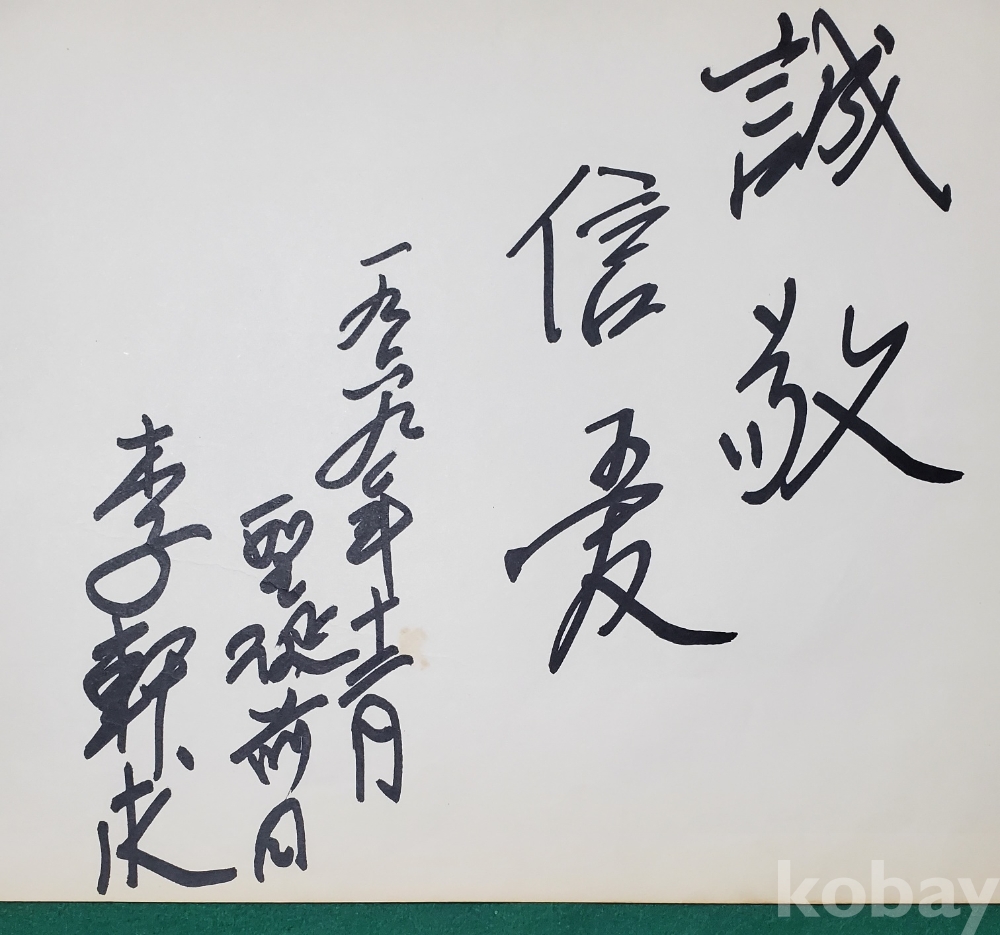 誠敬
信愛
一九六九年十二月
聖誕前日
李軒